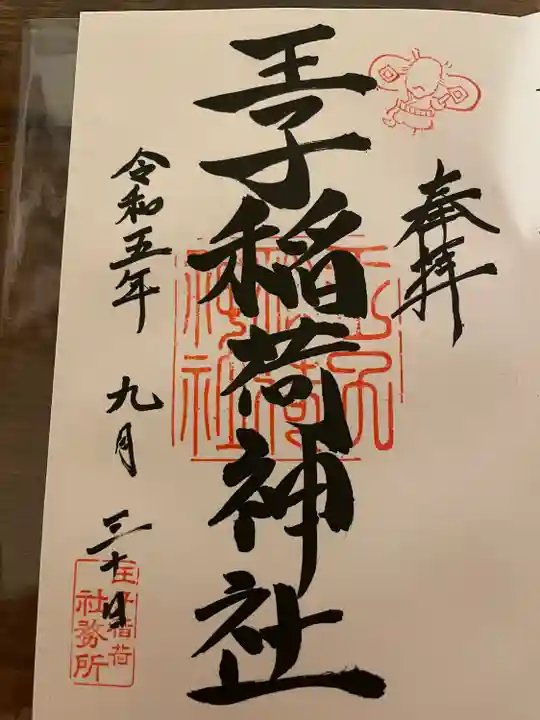 奉拝
王子稲荷神社
王子稲荷神社
令和五年 九月 三十日
王子稲荷
社務所